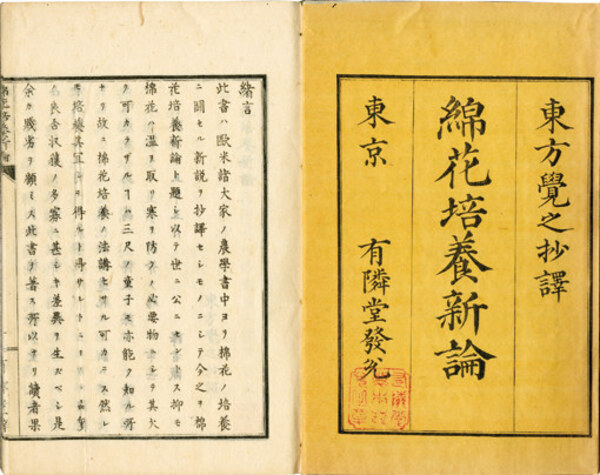 東方覺之抄譯
綿花培養新論
東京 有隣堂發兌
緒言
此書ハ歐米諸大家ノ農學書中ヨリ棉花ノ培養
ニ關セル新説ヲ抄譯セシモノニシテ今之ヲ棉
花培養新論ト題シ以テ世ニ公ニセントス抑モ
棉花ハ温ヲ取リ寒ヲ防クノ必要物ニシテ其欠
ク可カラザルヿハ三尺ノ童子モ亦能ク知ル所
ナリ故ニ棉花培養ノ法講セサル可カラス然レ
培養其宜シキヲ得ルト得サルト
良否収穫ノ多寡ニ甚シキ差異ヲ生スベシ是
余カ淺劣ヲ顧ミス此書ヲ著ス所以ナリ讀者果